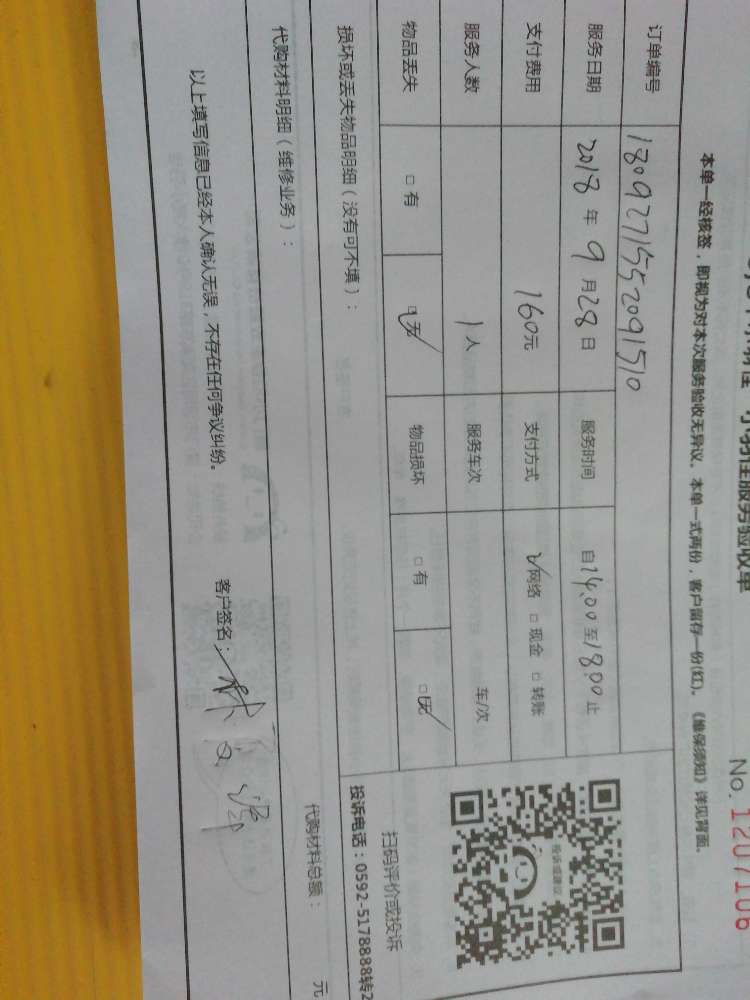 服务验收单
No. 1207106
本单一经核签，即视为对本次服务验收无异议。本单一式两份，客户留存一份(红)。《维保须知》详见背面。
订单编号 1809271552091510
服务日期 2018 年 9 月 28 日 服务时间 自 14:00 至 18:00 止
支付费用 160元 支付方式 网络 □ 现金 □ 转账
服务人数 1 人 服务车次 车/次
物品丢失 □ 有 □ 无 物品损坏 □ 有 □ 无
投诉或建议
扫码评价或投诉
投诉电话：0592-5178888转2
损坏或丢失物品明细（没有可不填）：
代购材料明细（维修业务）：
代购材料总额： 元
以上填写信息已经本人确认无误，不存在任何争议纠纷。
客户签名：